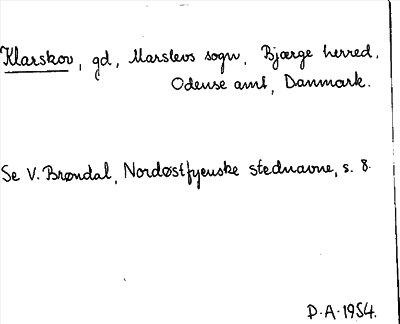 Klarskov, gd, Marslevs sogn, Bjærge herred,
Odense amt, Danmark.
Se V. Brøndal, Nordøstfyenske stednavne, s. 8.
D.A.1954.